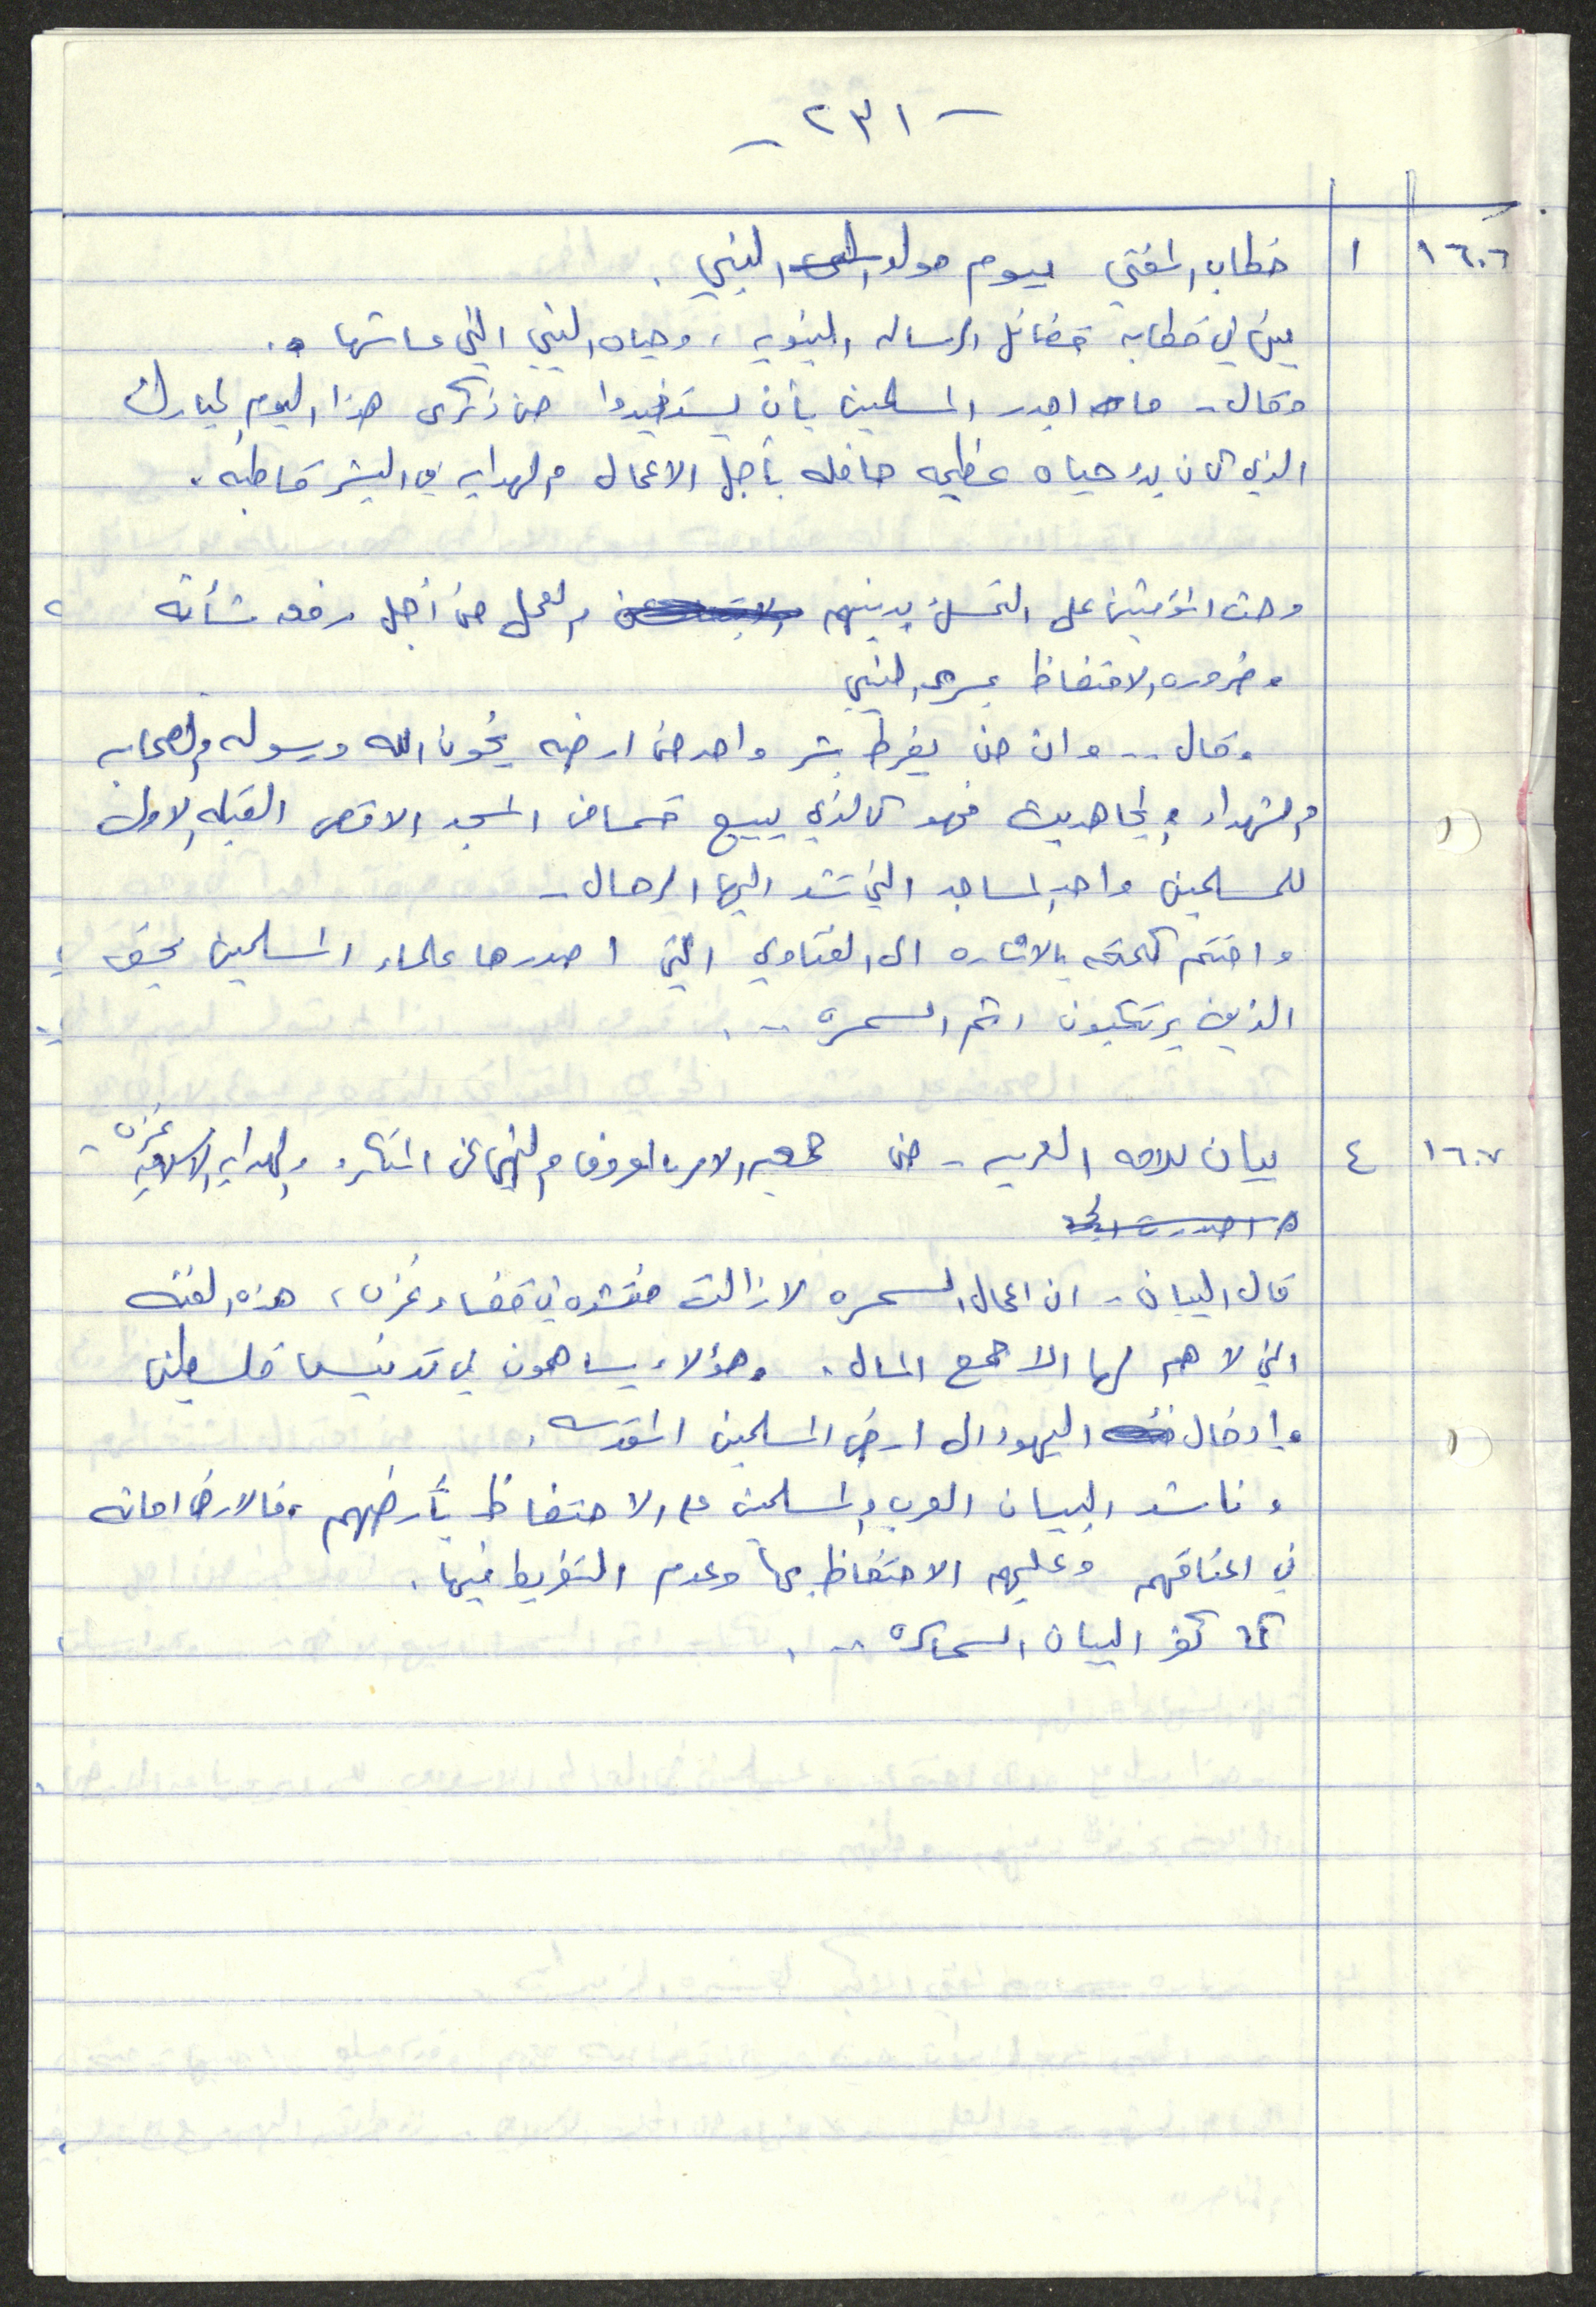 - ٢٣١ -
١٦٠٦ ١ خطاب المفتي بيوم مولد النبي .
بين في خطابه فضائل الرساله النبويه ، وحياه النبي التي عاشها .
وقال - ما اجدر المسلمين بأن يستفيدوا من ذكرى هذا اليوم المبارك
الذي كان بدء حياه عظيمه حافله بأجل الاعمال والهدايه في البشر قاطبه .
وحث المؤمنين على التمسك بدينهم والعمل من أجل رفع شأنه
وضروره الاحتفاظ بمسرى النبي
وقال .. وان من يفرط بشبر واحد من ارضه يخون الله ورسوله والصحابه
والشهداء والمجاهدين فهو كالذي يبيع قسما من المسجد الاقصى القبله الاولى
للمسلمين واحد المساجد التي تشد اليها الرحال -
واختتم كلمته بالاشاره الى الفتاوي التي اصدرها علماء المسلمين بحق
الذين يرتكبون اثم السمسره ...
١٦٠٧ ٤ بيان للامه العربيه - من جمعيه الامر بالمعروف والنهي عن المنكر والهدايه الاسلاميه غزه -
قال البيان - ان اعمال السمسره لا زالت منتشره في قضاء غزه ، هذه الفئه
التي لا هم لها الا جمع المال . وهؤلاء يساهمون في تدنيس فلسطين
وادخال اليهود الى ارض المسلمين المقدسه .
وناشد البيان العرب والمسلمين على الاحتفاظ بأرضهم ، فالارض امانه
في اعناقهم وعليهم الاحتفاظ بها وعدم التفريط فيها .
كما كفر البيان السماسره ...